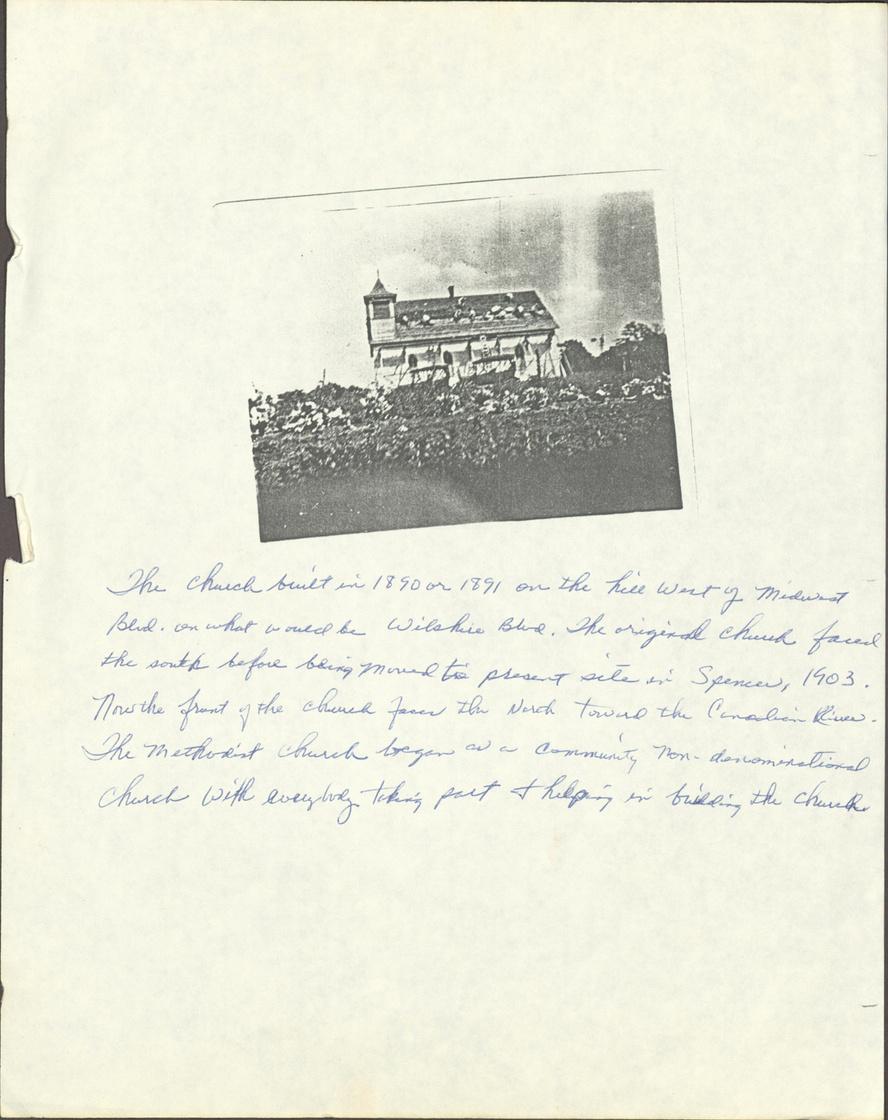 The church built in 1890 or 1891 on the hill West of Midwest
Blvd. on what would be Wilshire Blvd. The original church faced
the south before being moved to present site in Spencer, 1903.
Now the front of the church faces the North toward the Canadian River.
The Methodist church began as a community non-denominational
church with everybody taking part & helping in building the church